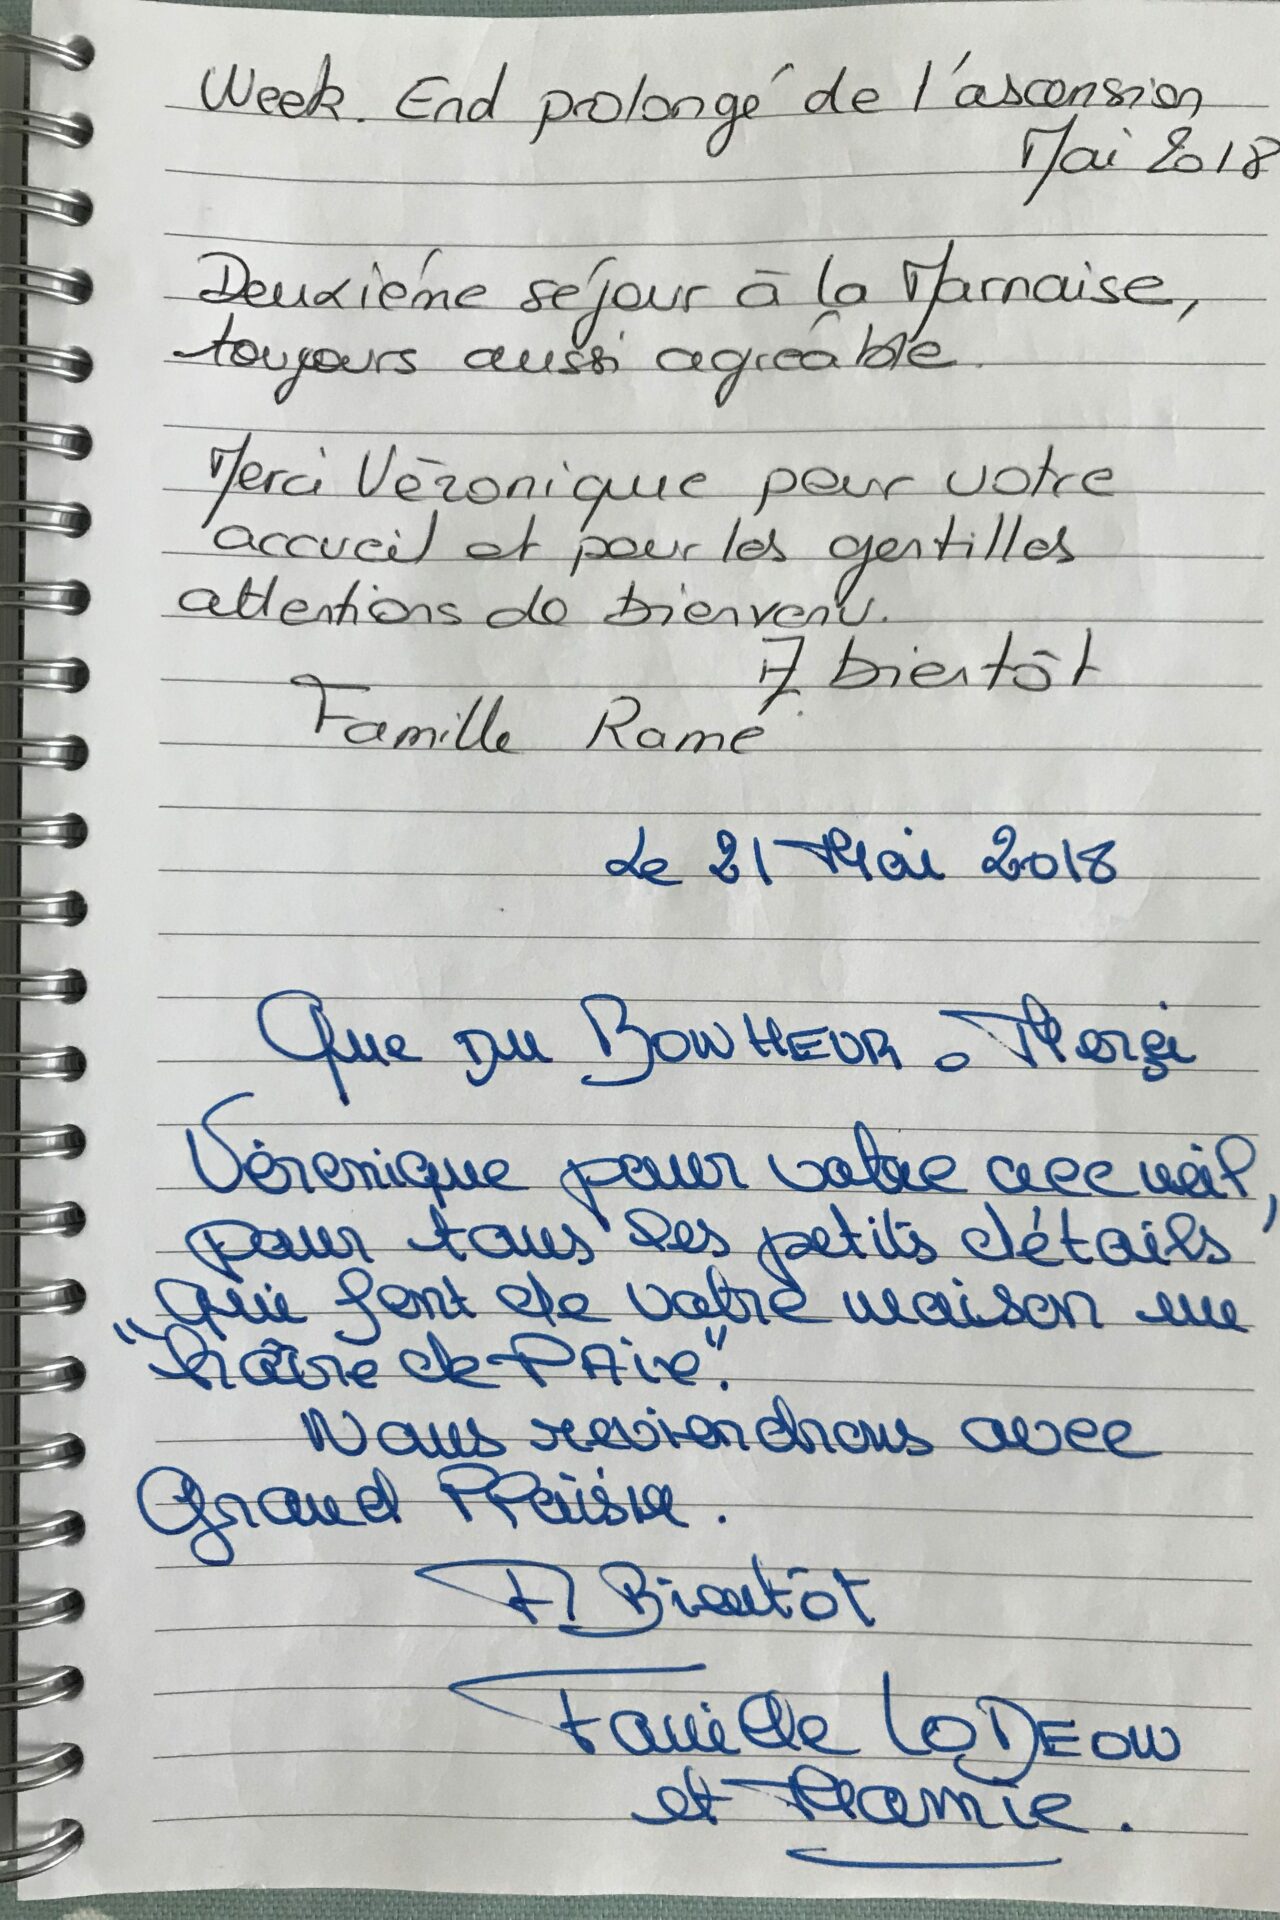 Week. End prolongé de l'ascension
Mai 2018
Deuxième séjour à la Marnaise,
toujours aussi agréable.
Merci Véronique pour votre
accueil et pour les gentilles
attentions de bienvenu.
A bientôt
Famille Ramé
Le 21 Mai 2018
Que DU BONHEUR. Merci
Véronique pour votre accueil,
pour tous les petits détails
qui font de votre maison un
"hâvre de PAix".
Nous reviendrons avec
Grand Plaisir.
A Bientôt
Famille LODEON
et Mamie.